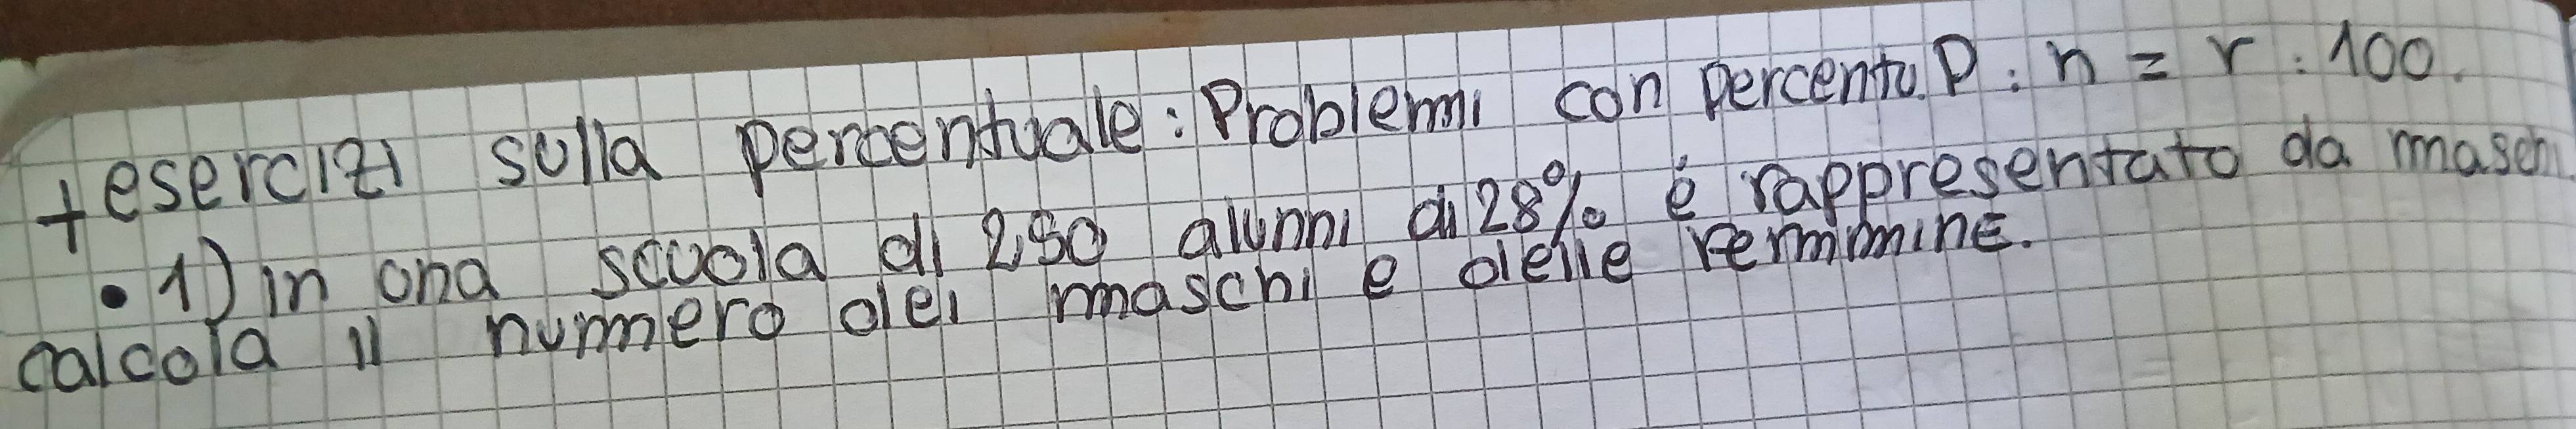 + esercizi sulla percentuale: Problemi con percentu. P : n = r : 100.
• 1) in una scuola di 250 alunni di 28% é rappresentato da masch.
calcola il numero dei maschi e delle femmine.